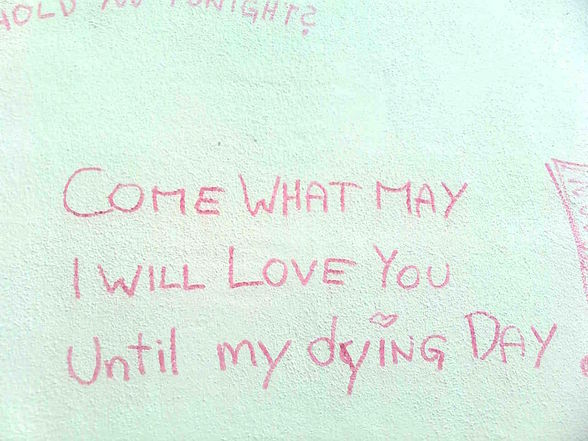 HOLD YOU TONIGHT?
COME WHAT MAY
I WILL LOVE YOU
Until my dyiNG DAY